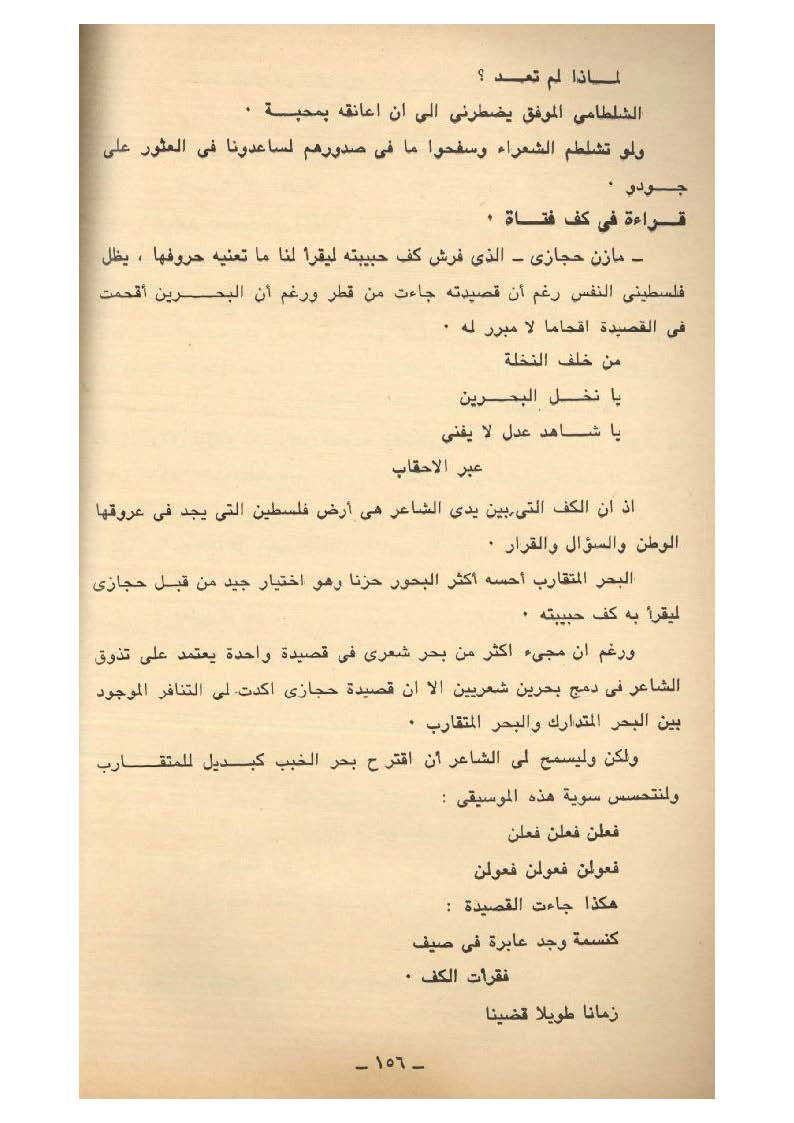 لمـــاذا لم تعـــد ؟
الشلطامى الموفق يضطرنى الى ان اعانقه بمحبـــة ٠
ولو تشلطم الشعراء وسفحوا ما فى صدورهم لساعدونا فى العثور على
جـــودو ٠
قـــراءة فى كف فتـــاة ٠
ـ مازن حجازى ـ الذى فرش كف حبيبته ليقرأ لنا ما تعنيه حروفها ، يظل
فلسطينى النفس رغم أن قصيدته جاءت من قطر ورغم أن البحـــرين أقحمت
فى القصيدة اقحاما لا مبرر له ٠
من خلف النخلة
يا نخـــل البحـــرين
يا شـــاهد عدل لا يفنى
عبر الاحقاب
اذ ان الكف التى بين يدى الشاعر هى أرض فلسطين التى يجد فى عروقها
الوطن والسؤال والقرار ٠
البحر المتقارب أحسه أكثر البحور حزنا وهو اختيار جيد من قبـل حجازى
ليقرأ به كف حبيبته ٠
ورغم ان مجىء اكثر من بحر شعرى فى قصيدة واحدة يعتمد على تذوق
الشاعر فى دمج بحرين شعريين الا ان قصيدة حجازى اكدت لى التنافر الموجود
بين البحر المتدارك والبحر المتقارب ٠
ولكن وليسمح لى الشاعر أن اقترح بحر الخبب كبـــديل للمتقـــارب
ولنتحسس سوية هذه الموسيقى :
فعلن فعلن فعلن
فعولن فعولن فعولن
هكذا جاءت القصيدة :
كنسمة وجد عابرة فى صيف
فقرأت الكف ٠
زمانا طويلا قضينا
ـ ١٥٦ ـ